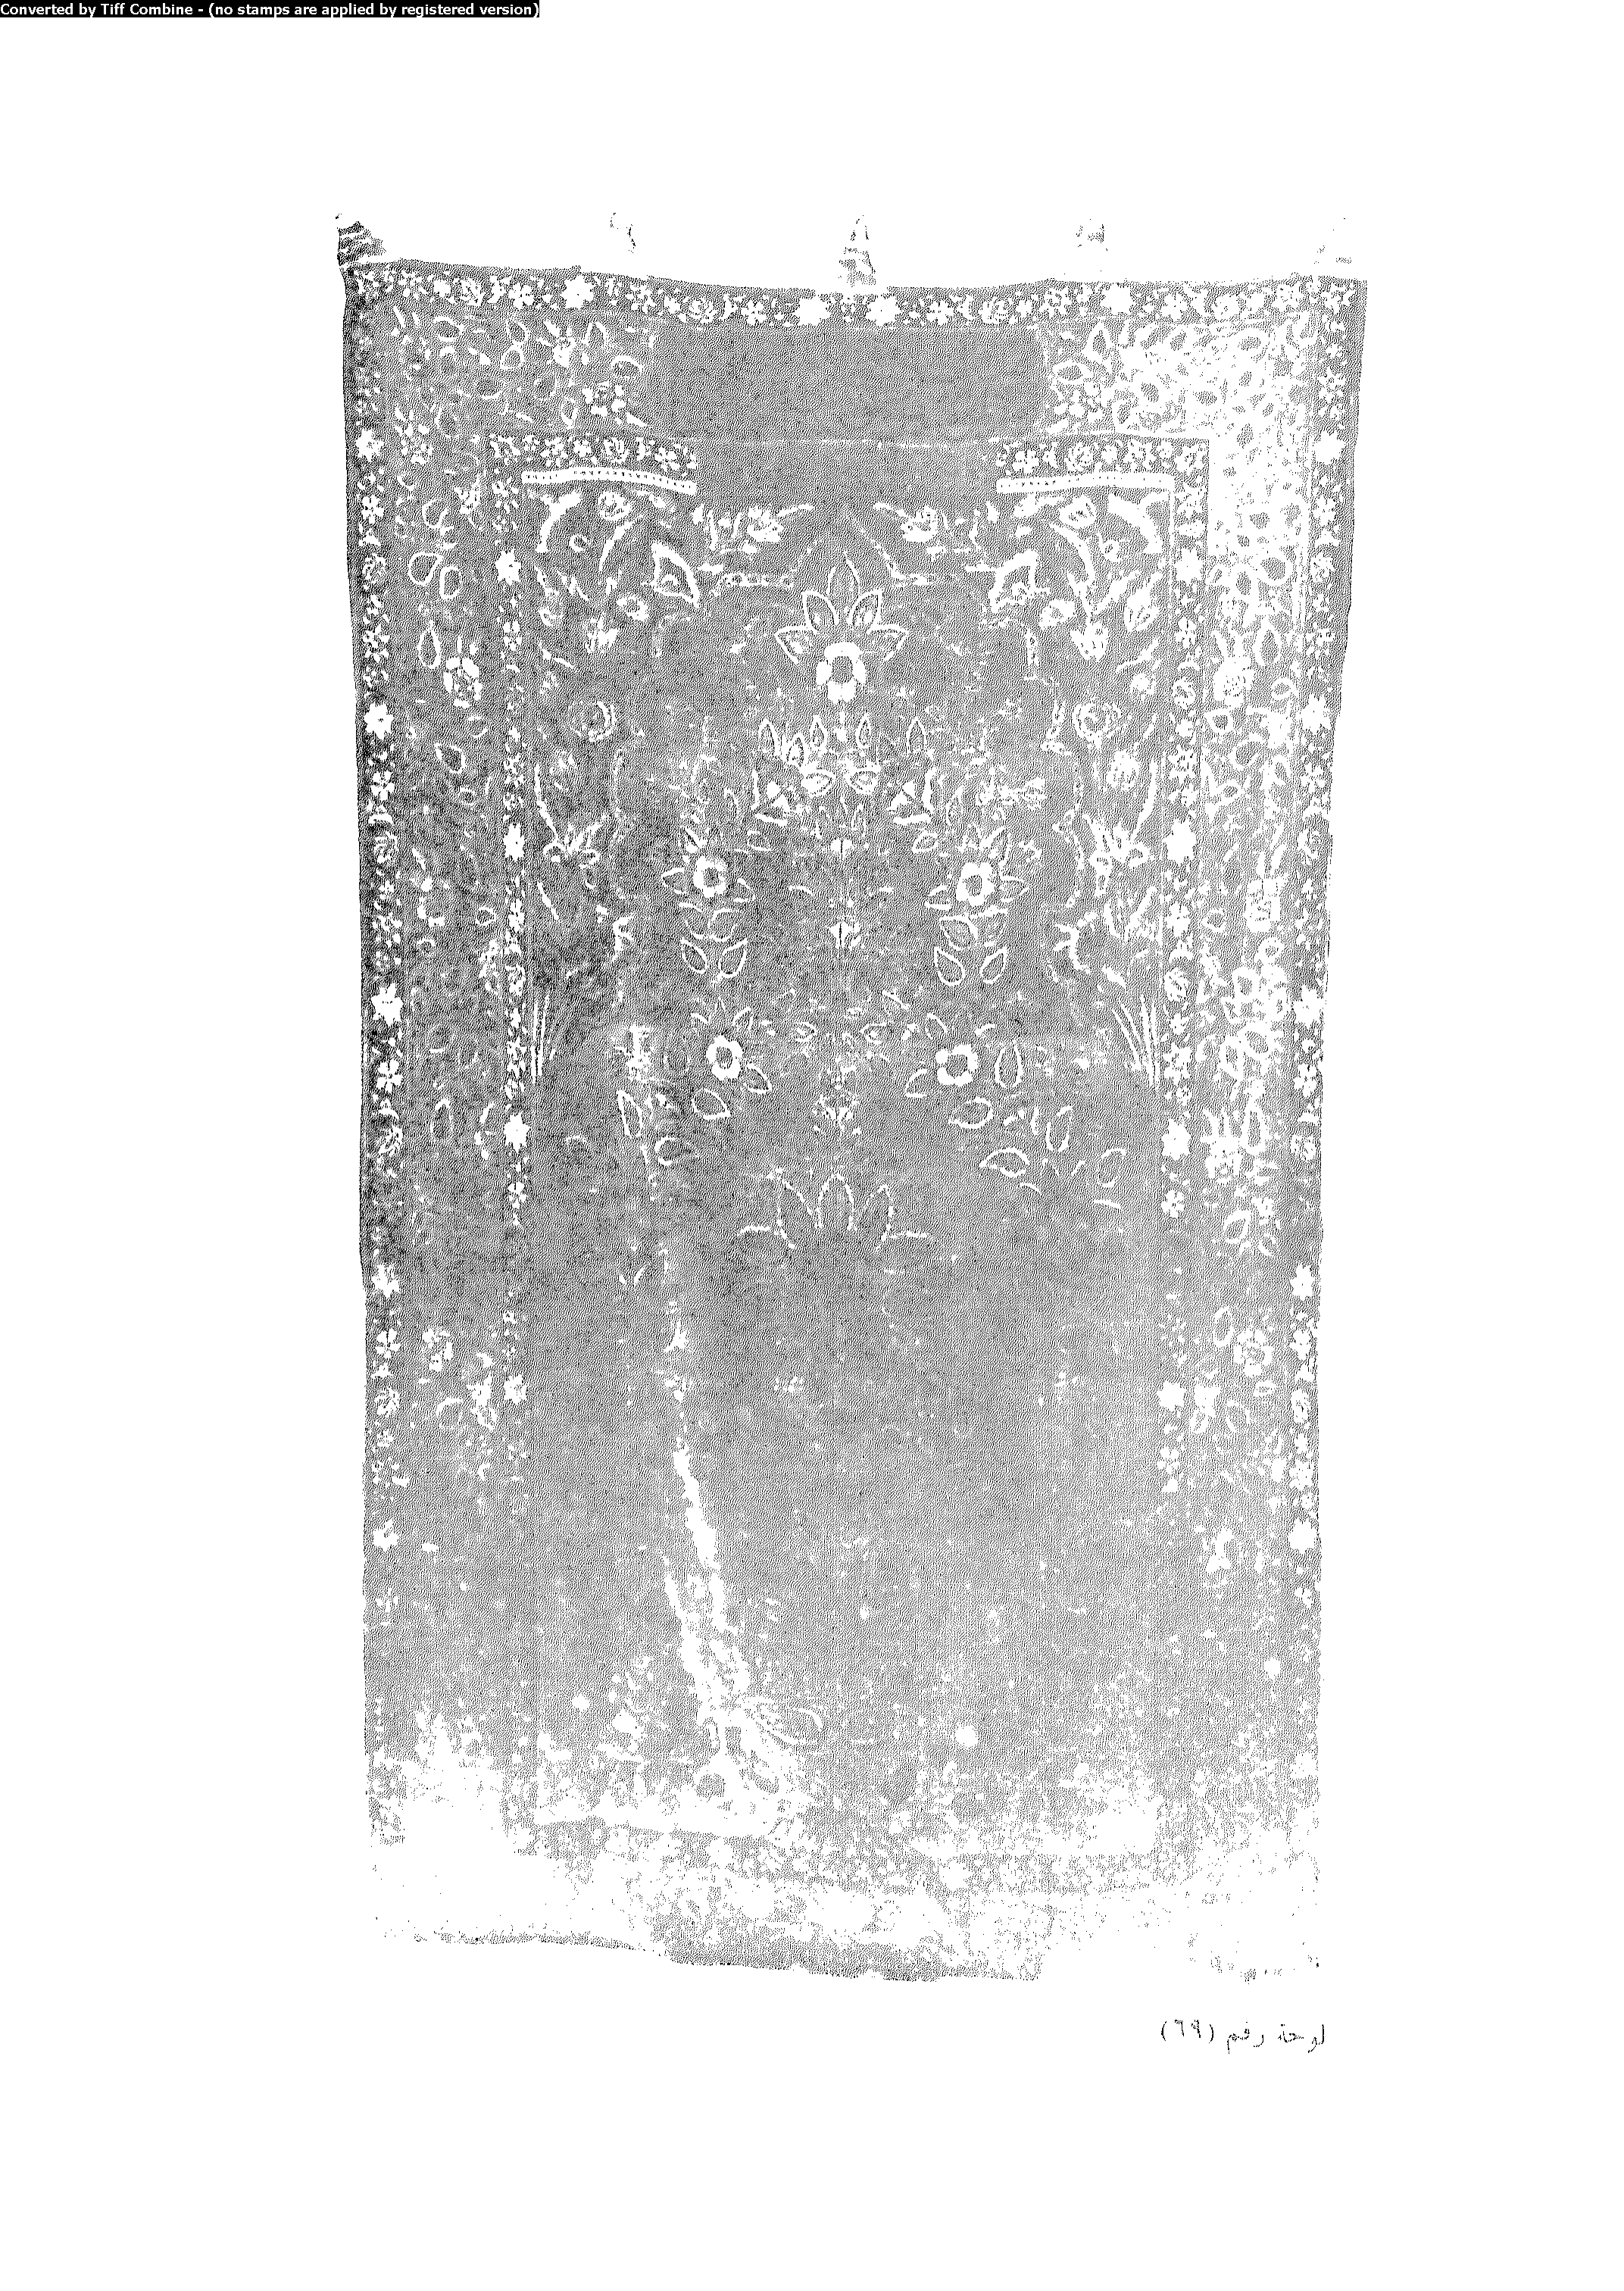 Converted by Tiff Combine - (no stamps are applied by registered version)
لوحة رقم (٦٩)